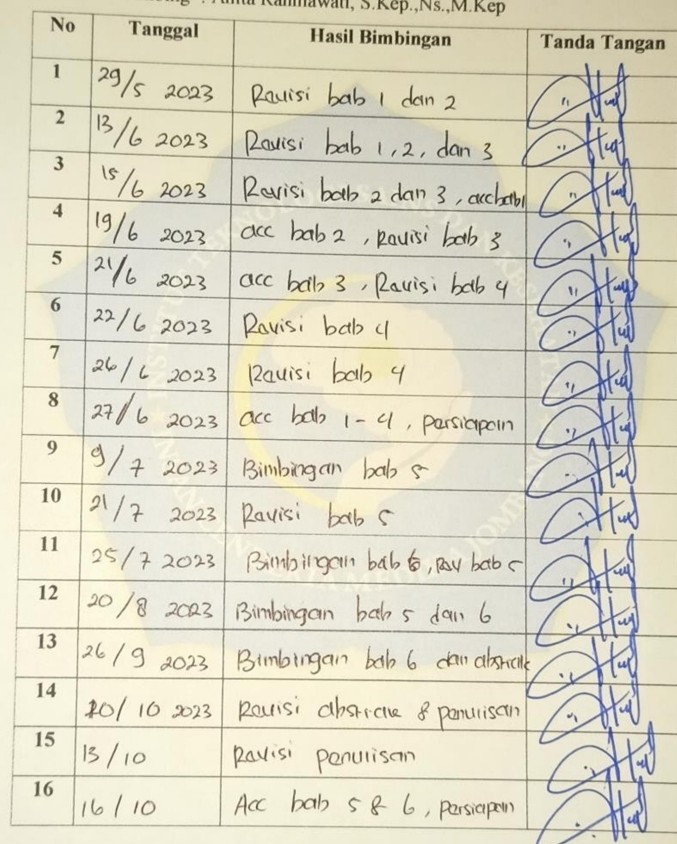 S.Kep.,Ns.,M.Kep
No Tanggal Hasil Bimbingan Tanda Tangan
1 29/5 2023 Revisi bab 1 dan 2
2 13/6 2023 Revisi bab 1, 2, dan 3
3 15/6 2023 Revisi bab 2 dan 3, acc bab 1
4 19/6 2023 acc bab 2, Revisi bab 3
5 21/6 2023 acc bab 3, Revisi bab 4
6 22/6 2023 Revisi bab 4
7 26/6 2023 Revisi bab 4
8 27/6 2023 acc bab 1-4, persiapan
9 9/7 2023 Bimbingan bab 5
10 21/7 2023 Revisi bab 5
11 25/7 2023 Bimbingan bab 6, Rev bab 5
12 20/8 2023 Bimbingan bab 5 dan 6
13 26/9 2023 Bimbingan bab 6 dan abstrak
14 10/10 2023 Revisi abstrak & penulisan
15 13/10 Revisi penulisan
16 16/10 Acc bab 5 & 6, persiapan